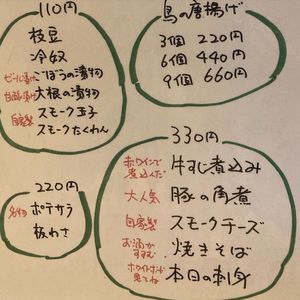 110円
枝豆
冷奴
ビール漬け ごぼうの漬物
甘酢漬け 大根の漬物
自家製 スモーク玉子
スモークたくわん
鳥の唐揚げ
3個 220円
6個 440円
9個 660円
220円
名物 ポテサラ
板わさ
330円
赤ワインで煮込んだ 牛すじ煮込み
大人気 豚の角煮
自家製 スモークチーズ
お酒がすすむ 焼きそば
ホワイトボード見てね 本日の刺身